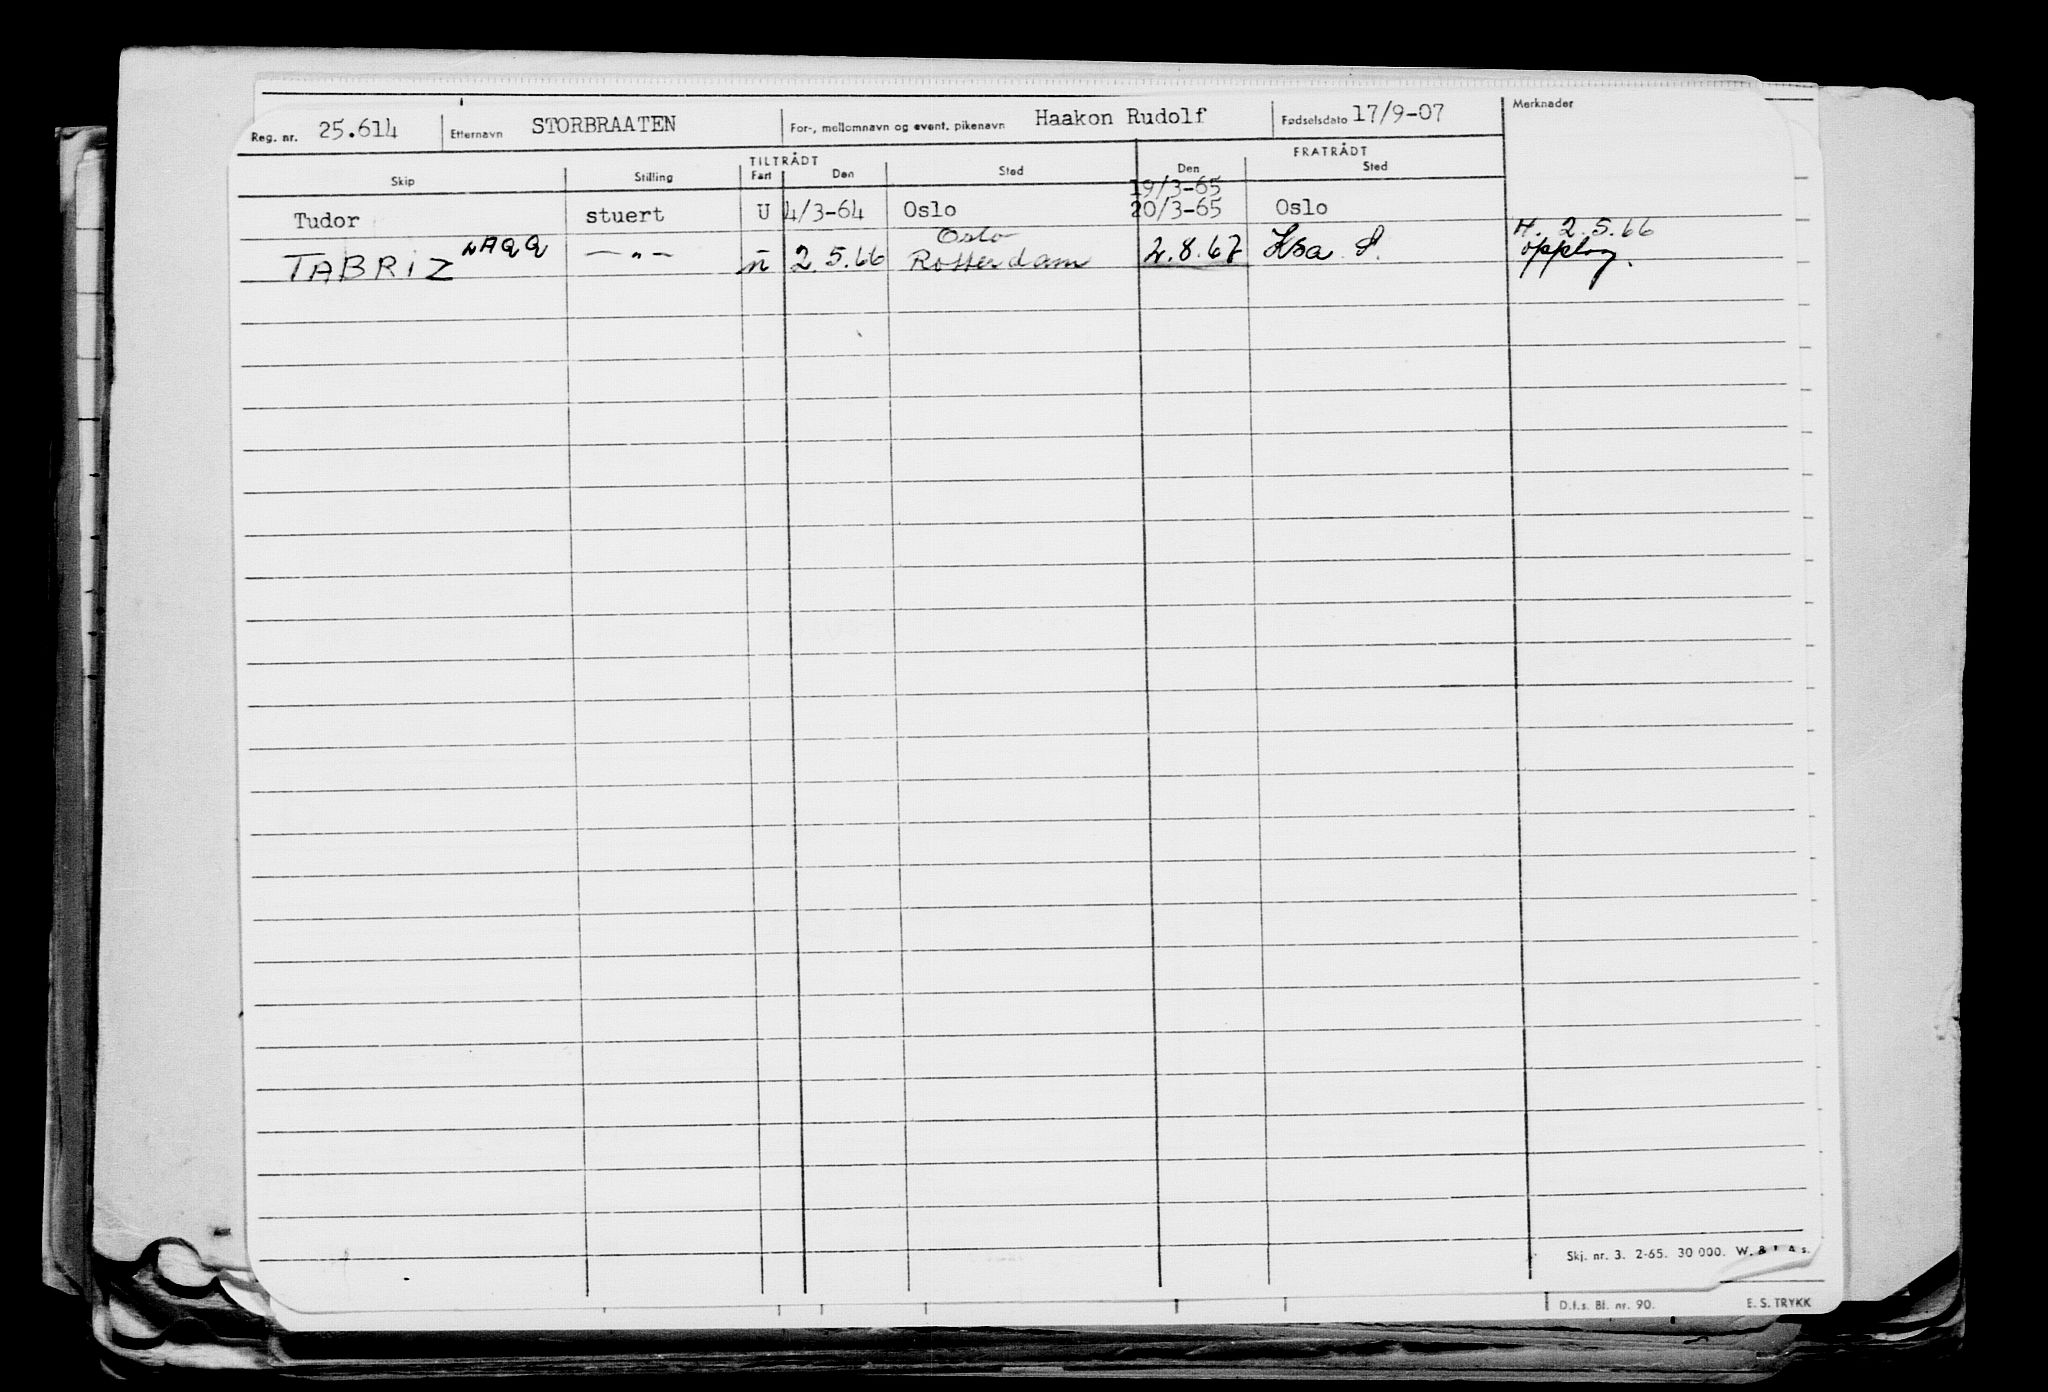 Reg. nr. 25.614 Etternavn STORBRAATEN For-, mellomnavn og event. pikenavn Haakon Rudolf Fødselsdato 17/9-07 Merknader
TILTRÅDT FRATRÅDT
Skip Stilling Fart Den Sted Den Sted
19/3-65
Tudor stuert U 4/3-64 Oslo 20/3-65 Oslo
H. 2.5.66
Oslo
TABRIZ LAQQ —"— 2.5.66 Rotterdam 2.8.67 opplag.
Skj. nr. 3. 2-65. 30 000. W. &
D.f.s. Bl. nr. 90. E. S. TRYKK